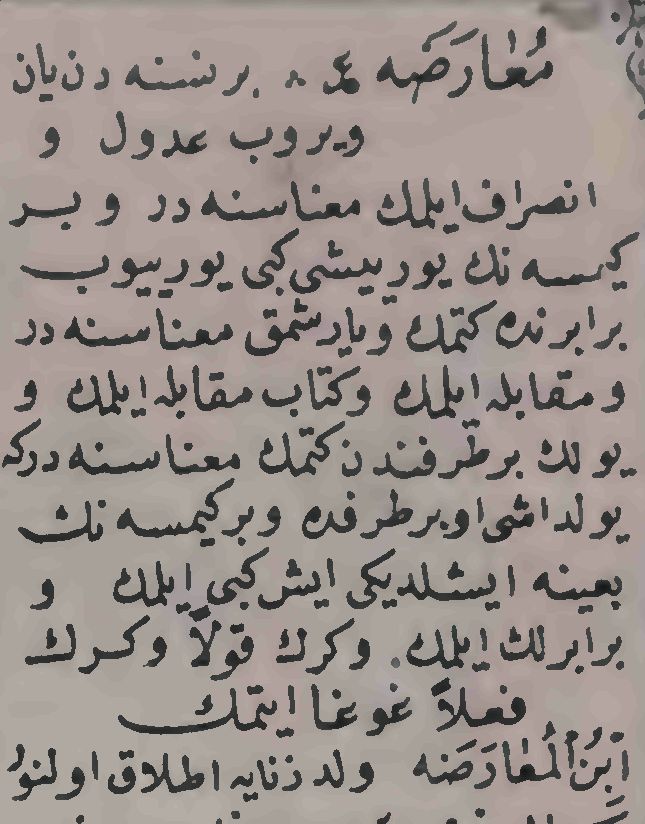 مُعَارَضَه ع م بر نسنه دن یان
ویروب عدول و
انصراف ایلمك معناسنه در و بـر
کیمسه نك یوریشی کبی یوریوب
برابرنده کتمك و یارشمق معناسنه در
و مقابله ایلمك و کتاب مقابله ایلمك و
یولك بر طرفندن کتمك معناسنه در که
یولداشی اوبر طرفده و بر کیمسه نك
بعینه ایشلدیکی ایش کبی ایلمك و
برابرلك ایلمك و کرك قولاً و کـرك
فعلاً غوغا ایتمك
اِبْنُ الْمُعَارَضَه ولد زنایه اطلاق اولنور